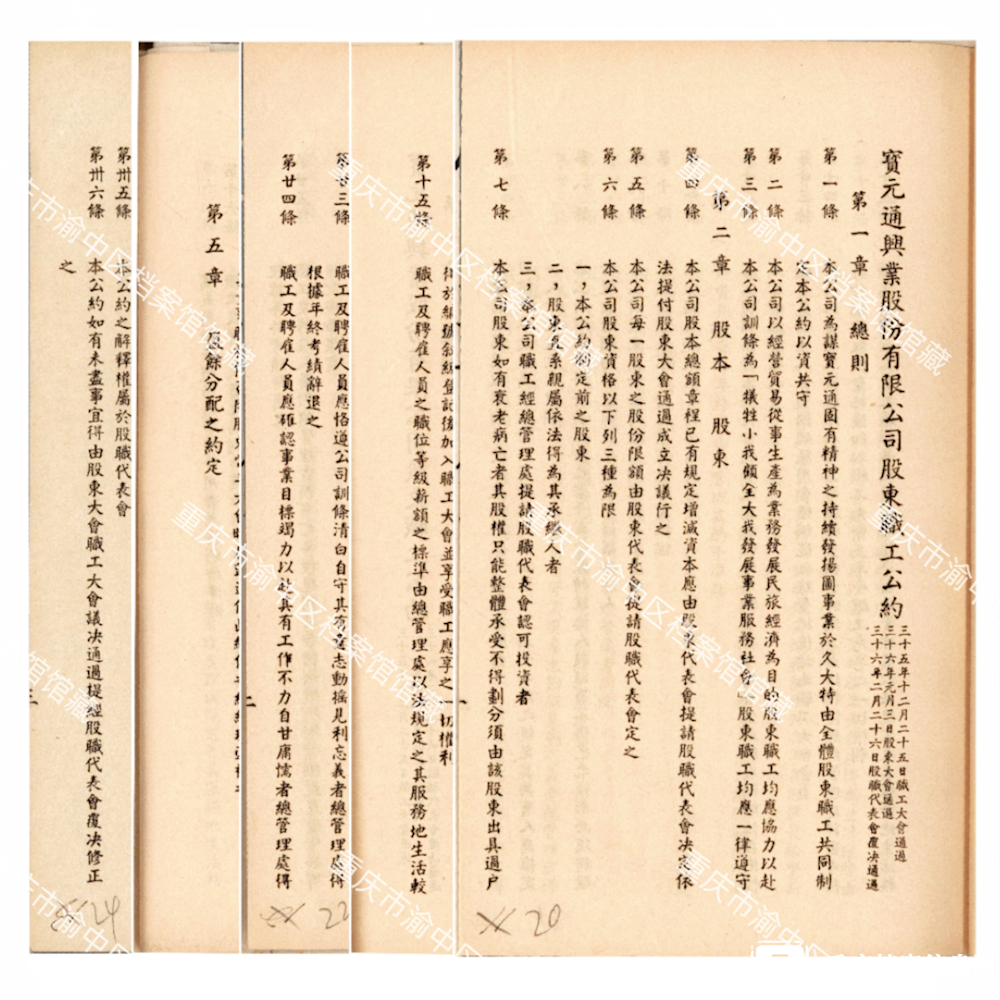 寶元通興業股份有限公司股東職工公約
三十五年十二月二十五日職工大會通過
三十六年元月三日股東大會通過
三十六年二月二十六日股職代表會覆决通過
第一章 總則
第一條 本公司為謀寶元通固有精神之持續發揚圖事業於久大特由全體股東職工共同制
定本公約以資共守
第二條 本公司以經營貿易從事生產為業務發展民族經濟為目的股東職工均應協力以赴
第三條 本公司訓條為「犠牲小我顧全大我發展事業服務社會」股東職工均應一律遵守
第二章 股本 股東
第四條 本公司股本總額章程已有規定增減資本應由股東代表會提請股職代表會决定依
法提付股東大會通過成立决議行之
第五條 本公司每一股東之股份限額由股東代表會提請股職代表會定之
第六條 本公司股東資格以下列三種為限
一，本公約制定前之股東
二，股東直系親屬依法得為其承繼人者
三，本公司職工經總管理處提請股職代表會認可投資者
第七條 本公司股東如有衰老病亡者其股權只能整體承受不得劃分須由該股東出具過户
一
加入職工大會並享受職工應享之一切權利
第十五條 職工及聘雇人員之職位等級薪額之標準由總管理處以法規定之其服務地生活較
第廿三條 職工及聘雇人員應恪遵公司訓條清白自守其有意志動搖見利忘義者總管理處得
根據年終考績辭退之
第廿四條 職工及聘雇人員應確認事業目標竭力以赴其有工作不力自甘庸懦者總管理處得
二
第五章 盈餘分配之約定
第卅五條 本公約之解釋權屬於股職代表會
第卅六條 本公約如有未盡事宜得由股東大會職工大會議决通過提經股職代表會覆决修正
之
三
20
22
24
重庆市渝中区档案馆馆藏